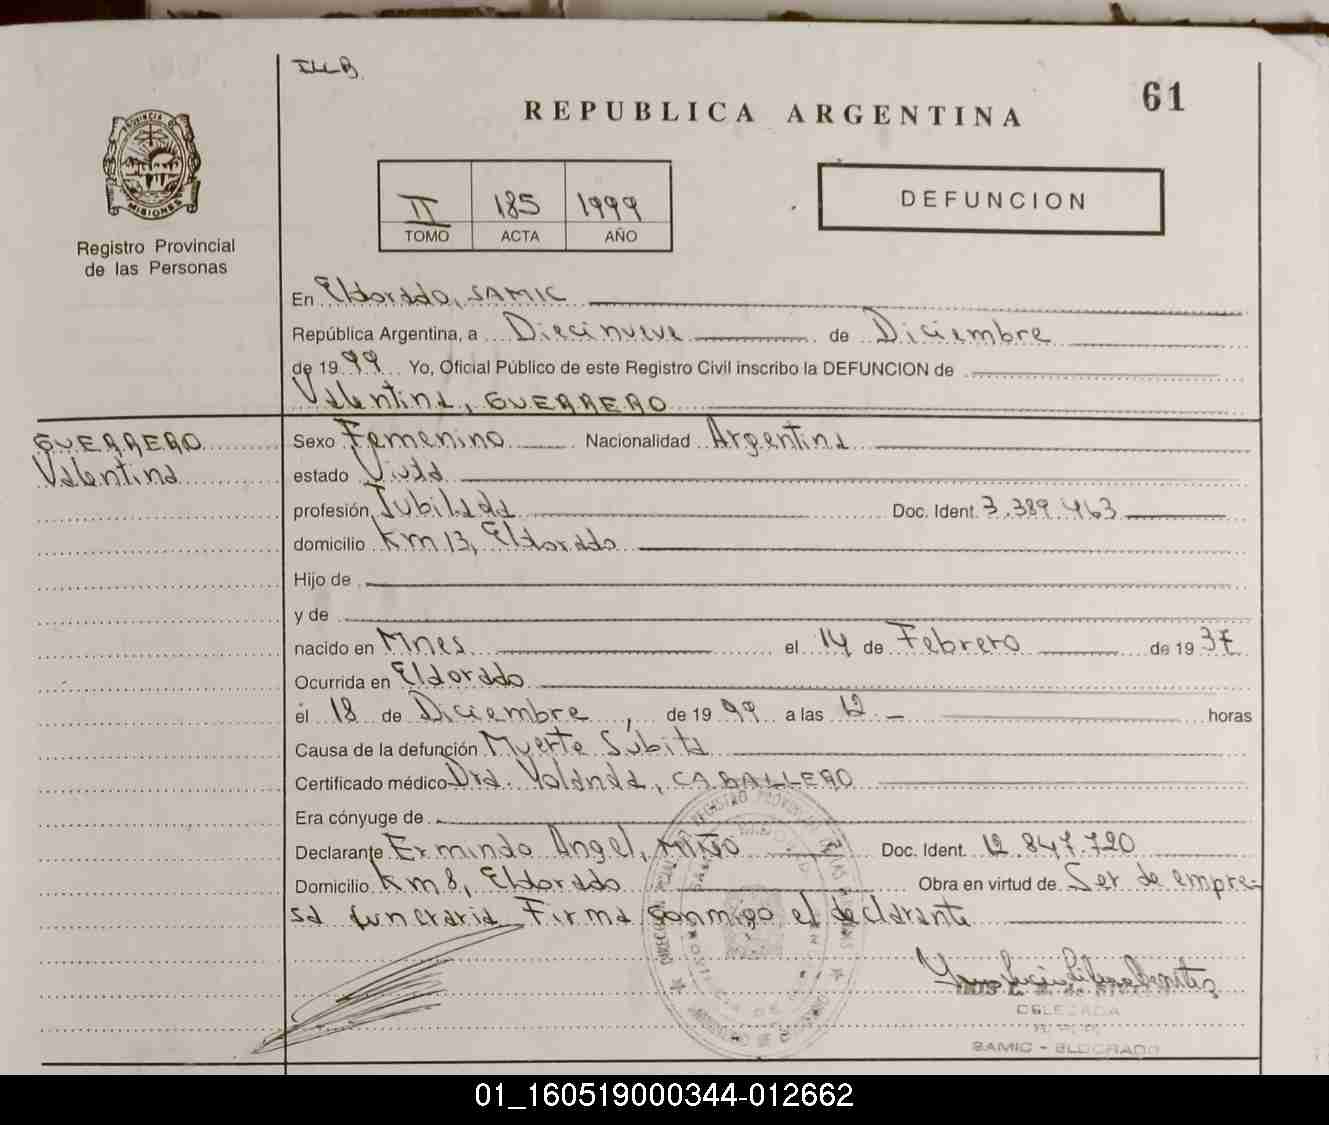 ILLB
61
REPUBLICA ARGENTINA
PROVINCIA DE
MISIONES
Registro Provincial
de las Personas
II 185 1999
TOMO ACTA AÑO
DEFUNCION
En Eldorado, SAMIC
República Argentina, a Diecinueve de Diciembre
de 1999 Yo, Oficial Público de este Registro Civil inscribo la DEFUNCION de
Valentina, GUERRERO
GUERRERO
Valentina
Sexo Femenino Nacionalidad Argentina
estado Viuda
profesión Jubilada Doc. Ident. 3.389.463
domicilio Km 13, Eldorado
Hijo de
y de
nacido en Mnes el 14 de Febrero de 1937
Ocurrida en Eldorado
el 18 de Diciembre, de 1999 a las 12 horas
Causa de la defunción Muerte Súbita
Certificado médico Dra. Yolanda, CABALLERO
Era cónyuge de
Declarante Ermindo Angel, MIÑO Doc. Ident. 12.847.720
Domicilio Km 8, Eldorado Obra en virtud de Ser de empre-
sa funeraria Firma conmigo el declarante
DELEGADA
SAMIC - ELDORADO
01_160519000344-012662